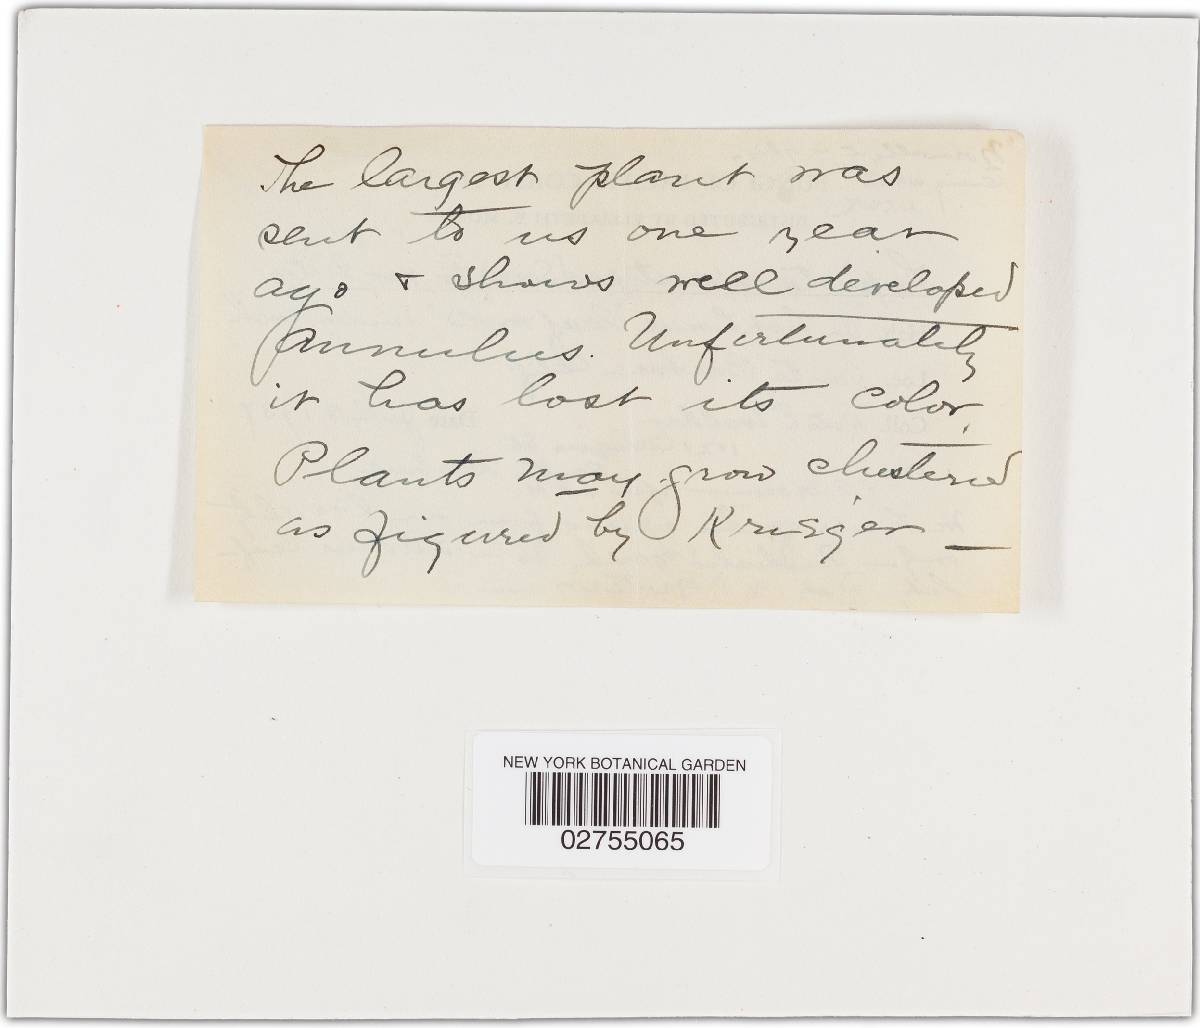 The largest plant was
sent to us one year
ago & shows well developed
annulus. Unfortunately
it has lost its color.
Plants may grow clustered
as figured by Krieger —
NEW YORK BOTANICAL GARDEN
02755065